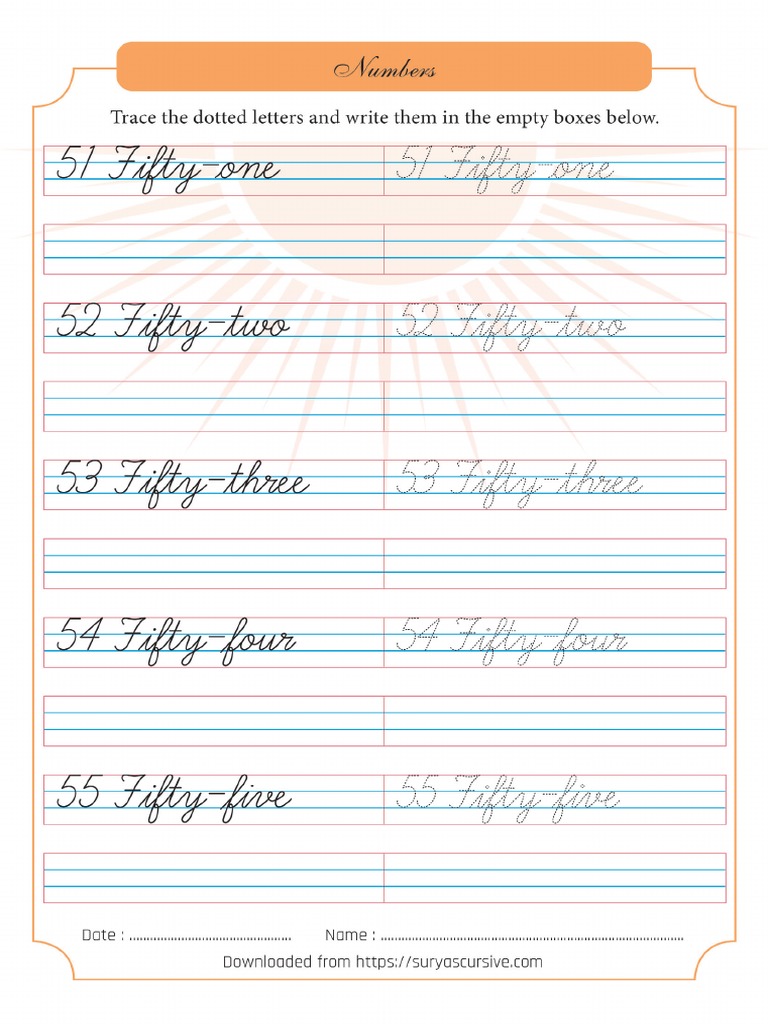 Numbers
Trace the dotted letters and write them in the empty boxes below.
51 Fifty-one 51 Fifty-one
52 Fifty-two 52 Fifty-two
53 Fifty-three 53 Fifty-three
54 Fifty-four 54 Fifty-four
55 Fifty-five 55 Fifty-five
Date : ........................................ Name : ...........................................................................
Downloaded from https://suryascursive.com